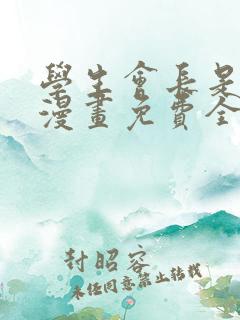 學生會長是
漫畫免費全
封昭容
未經同意禁止轉載